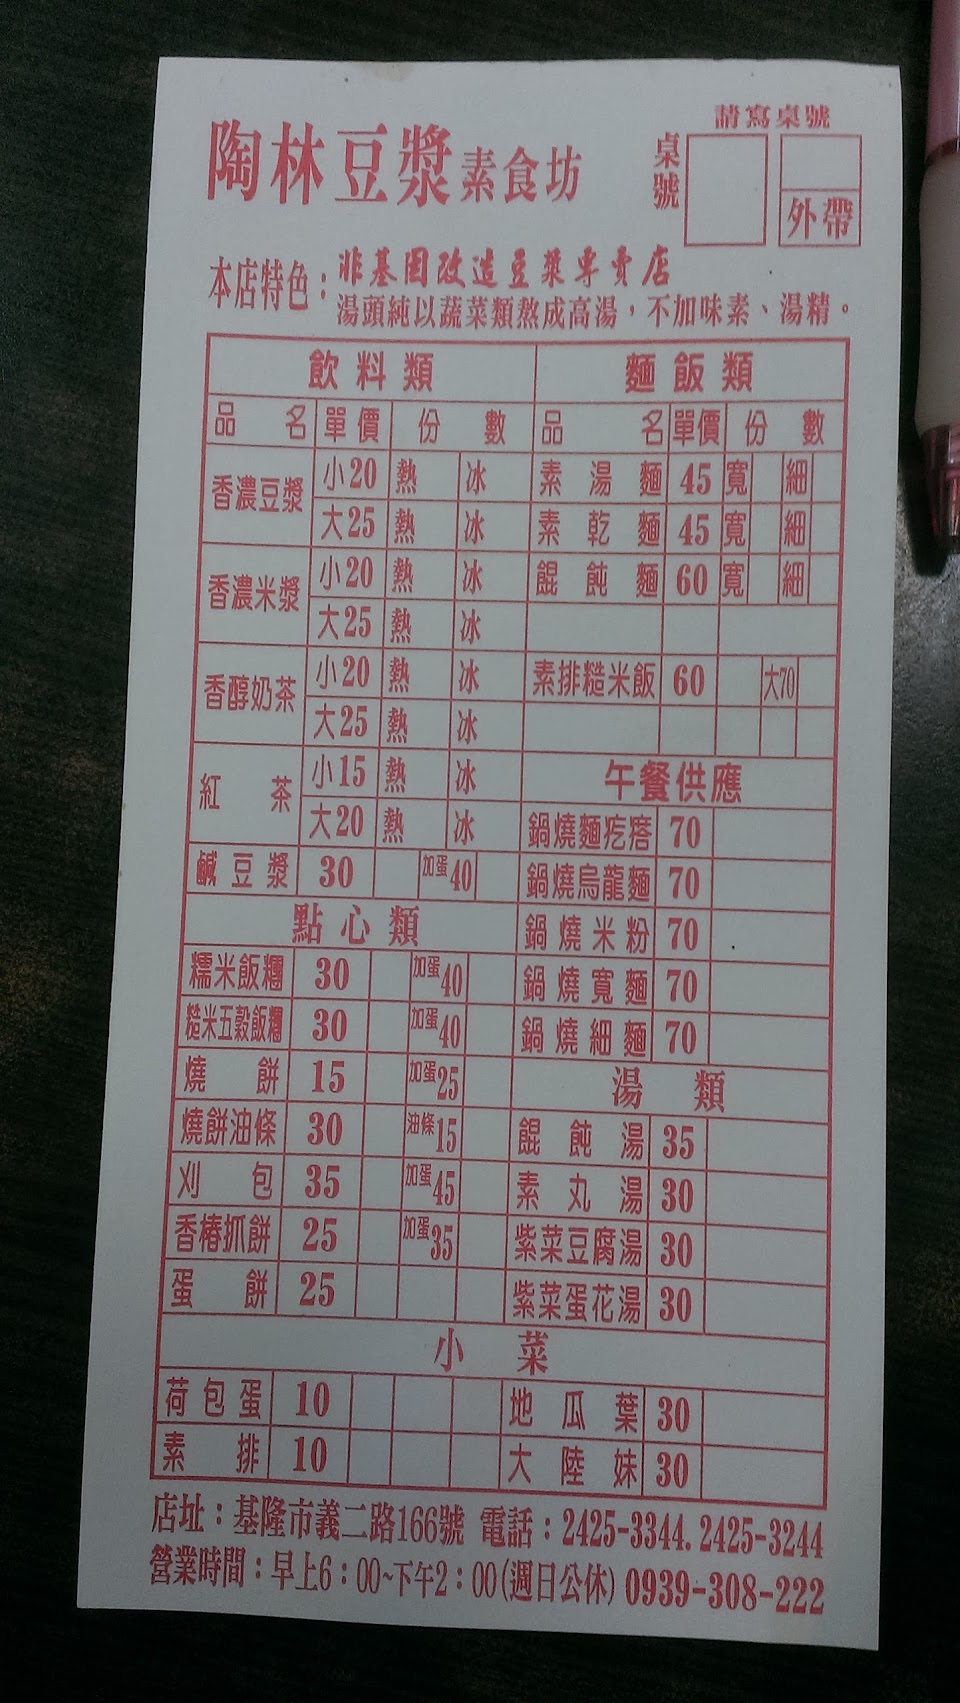 請寫桌號
陶林豆漿素食坊
桌號
外帶
本店特色：非基因改造豆漿專賣店
湯頭純以蔬菜類熬成高湯，不加味素、湯精。
飲料類 麵飯類
品名 單價 份數 品名 單價 份數
香濃豆漿 小20 熱 冰 素湯麵 45 寬 細
大25 熱 冰 素乾麵 45 寬 細
香濃米漿 小20 熱 冰 餛飩麵 60 寬 細
大25 熱 冰
香醇奶茶 小20 熱 冰 素排糙米飯 60 大70
大25 熱 冰
紅茶 小15 熱 冰 午餐供應
大20 熱 冰 鍋燒麵疙瘩 70
鹹豆漿 30 加蛋40 鍋燒烏龍麵 70
點心類 鍋燒米粉 70
糯米飯糰 30 加蛋40 鍋燒寬麵 70
糙米五穀飯糰 30 加蛋40 鍋燒細麵 70
燒餅 15 加蛋25 湯類
燒餅油條 30 油條15 餛飩湯 35
刈包 35 加蛋45 素丸湯 30
香椿抓餅 25 加蛋35 紫菜豆腐湯 30
蛋餅 25 紫菜蛋花湯 30
小菜
荷包蛋 10 地瓜葉 30
素排 10 大陸妹 30
店址：基隆市義二路166號 電話：2425-3344.2425-3244
營業時間：早上6：00~下午2：00(週日公休) 0939-308-222